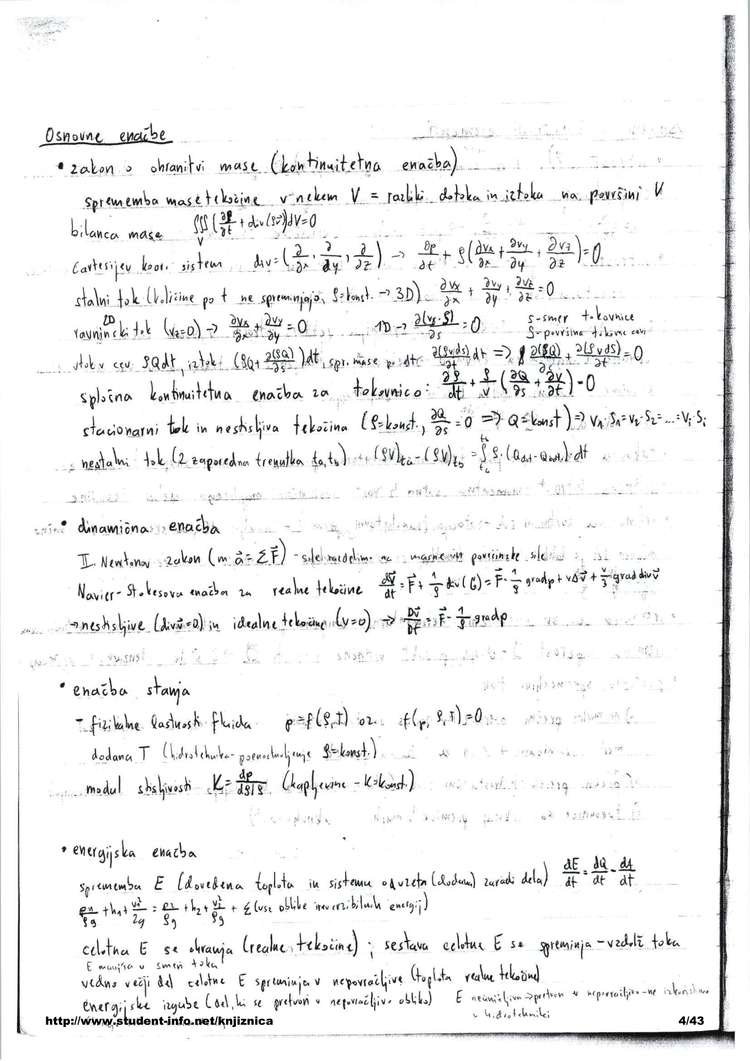 Osnovne enačbe
• zakon o ohranitvi mase (kontinuitetna enačba)
sprememba mase tekočine v nekem V = razliki dotoka in iztoka na površini V
bilanca mase ∭_V (∂ρ/∂t + div(ρv⃗))dV=0
Cartesijev koor. sistem div=(∂/∂x, ∂/∂y, ∂/∂z) → ∂ρ/∂t + ρ(∂vx/∂x + ∂vy/∂y + ∂vz/∂z)=0
stalni tok (količine po t ne spreminjajo, ρ=konst. → 3D) ∂vx/∂x + ∂vy/∂y + ∂vz/∂z =0
2D ravninski tok (vz=0) → ∂vx/∂x + ∂vy/∂y = 0 1D → ∂(vs·S)/∂s =0 s-smer tokovnice
S-površina tokovne cevi
vtok v cev ρQdt, iztok (ρQ+ ∂(ρQ)/∂s)dt, spr. mase po dt ∂(ρvdS)/∂t dt ⇒ ∂(ρQ)/∂s + ∂(ρvdS)/∂t =0
splošna kontinuitetna enačba za tokovnico: ∂ρ/∂t + ρ/V (∂Q/∂s + ∂V/∂t) = 0
stacionarni tok in nestisljiva tekočina (ρ=konst., ∂Q/∂s =0 ⇒ Q=konst) ⇒ v₁·S₁=v₂·S₂=...=vᵢ·Sᵢ
nestalni tok (2 zaporedna trenutka ta,tb) (ρV)ta-(ρV)tb = ∫ ρ·( )dt
• dinamična enačba
II. Newtonov zakon (m·a⃗=ΣF⃗) - sile razdelimo na masne in površinske sile
Navier-Stokesova enačba za realne tekočine dv⃗/dt = F⃗ + 1/ρ div(G) = F⃗ - 1/ρ gradp + νΔv⃗ + ν/3 grad divv⃗
→ nestisljive (divv⃗=0) in idealne tekočine (ν=0) → Dv⃗/Dt = F⃗ - 1/ρ gradp
• enačba stanja
- fizikalne lastnosti fluida p=f(ρ,T) oz. f(p, ρ, T)=0
dodana T (hidrotehnika-poenostavljenje ρ=konst.)
modul stisljivosti K= dp/dρ/ρ (kapljevine - K=konst.)
• energijska enačba
sprememba E (dovedena toplota in sistemu odvzeta (dodana) zaradi dela) dE/dt = dQ/dt - dA/dt
p₁/ρg + h₁ + v₁²/2g = p₂/ρg + h₂ + v₂²/ρg + Σ(vse oblike ireverzibilnih energij)
celotna E se ohranja (realne tekočine); sestava celotne E se spreminja - vzdolž toka
E manjša v smeri toka
vedno večji del celotne E spreminja v nepovračljive (toplota realne tekočine)
energijske izgube (del, ki se pretvori v nepovračljivo obliko) E → pretvori v nepovračljivo - ne
v hidrotehniki
http://www.student-info.net/knjiznica 4/43